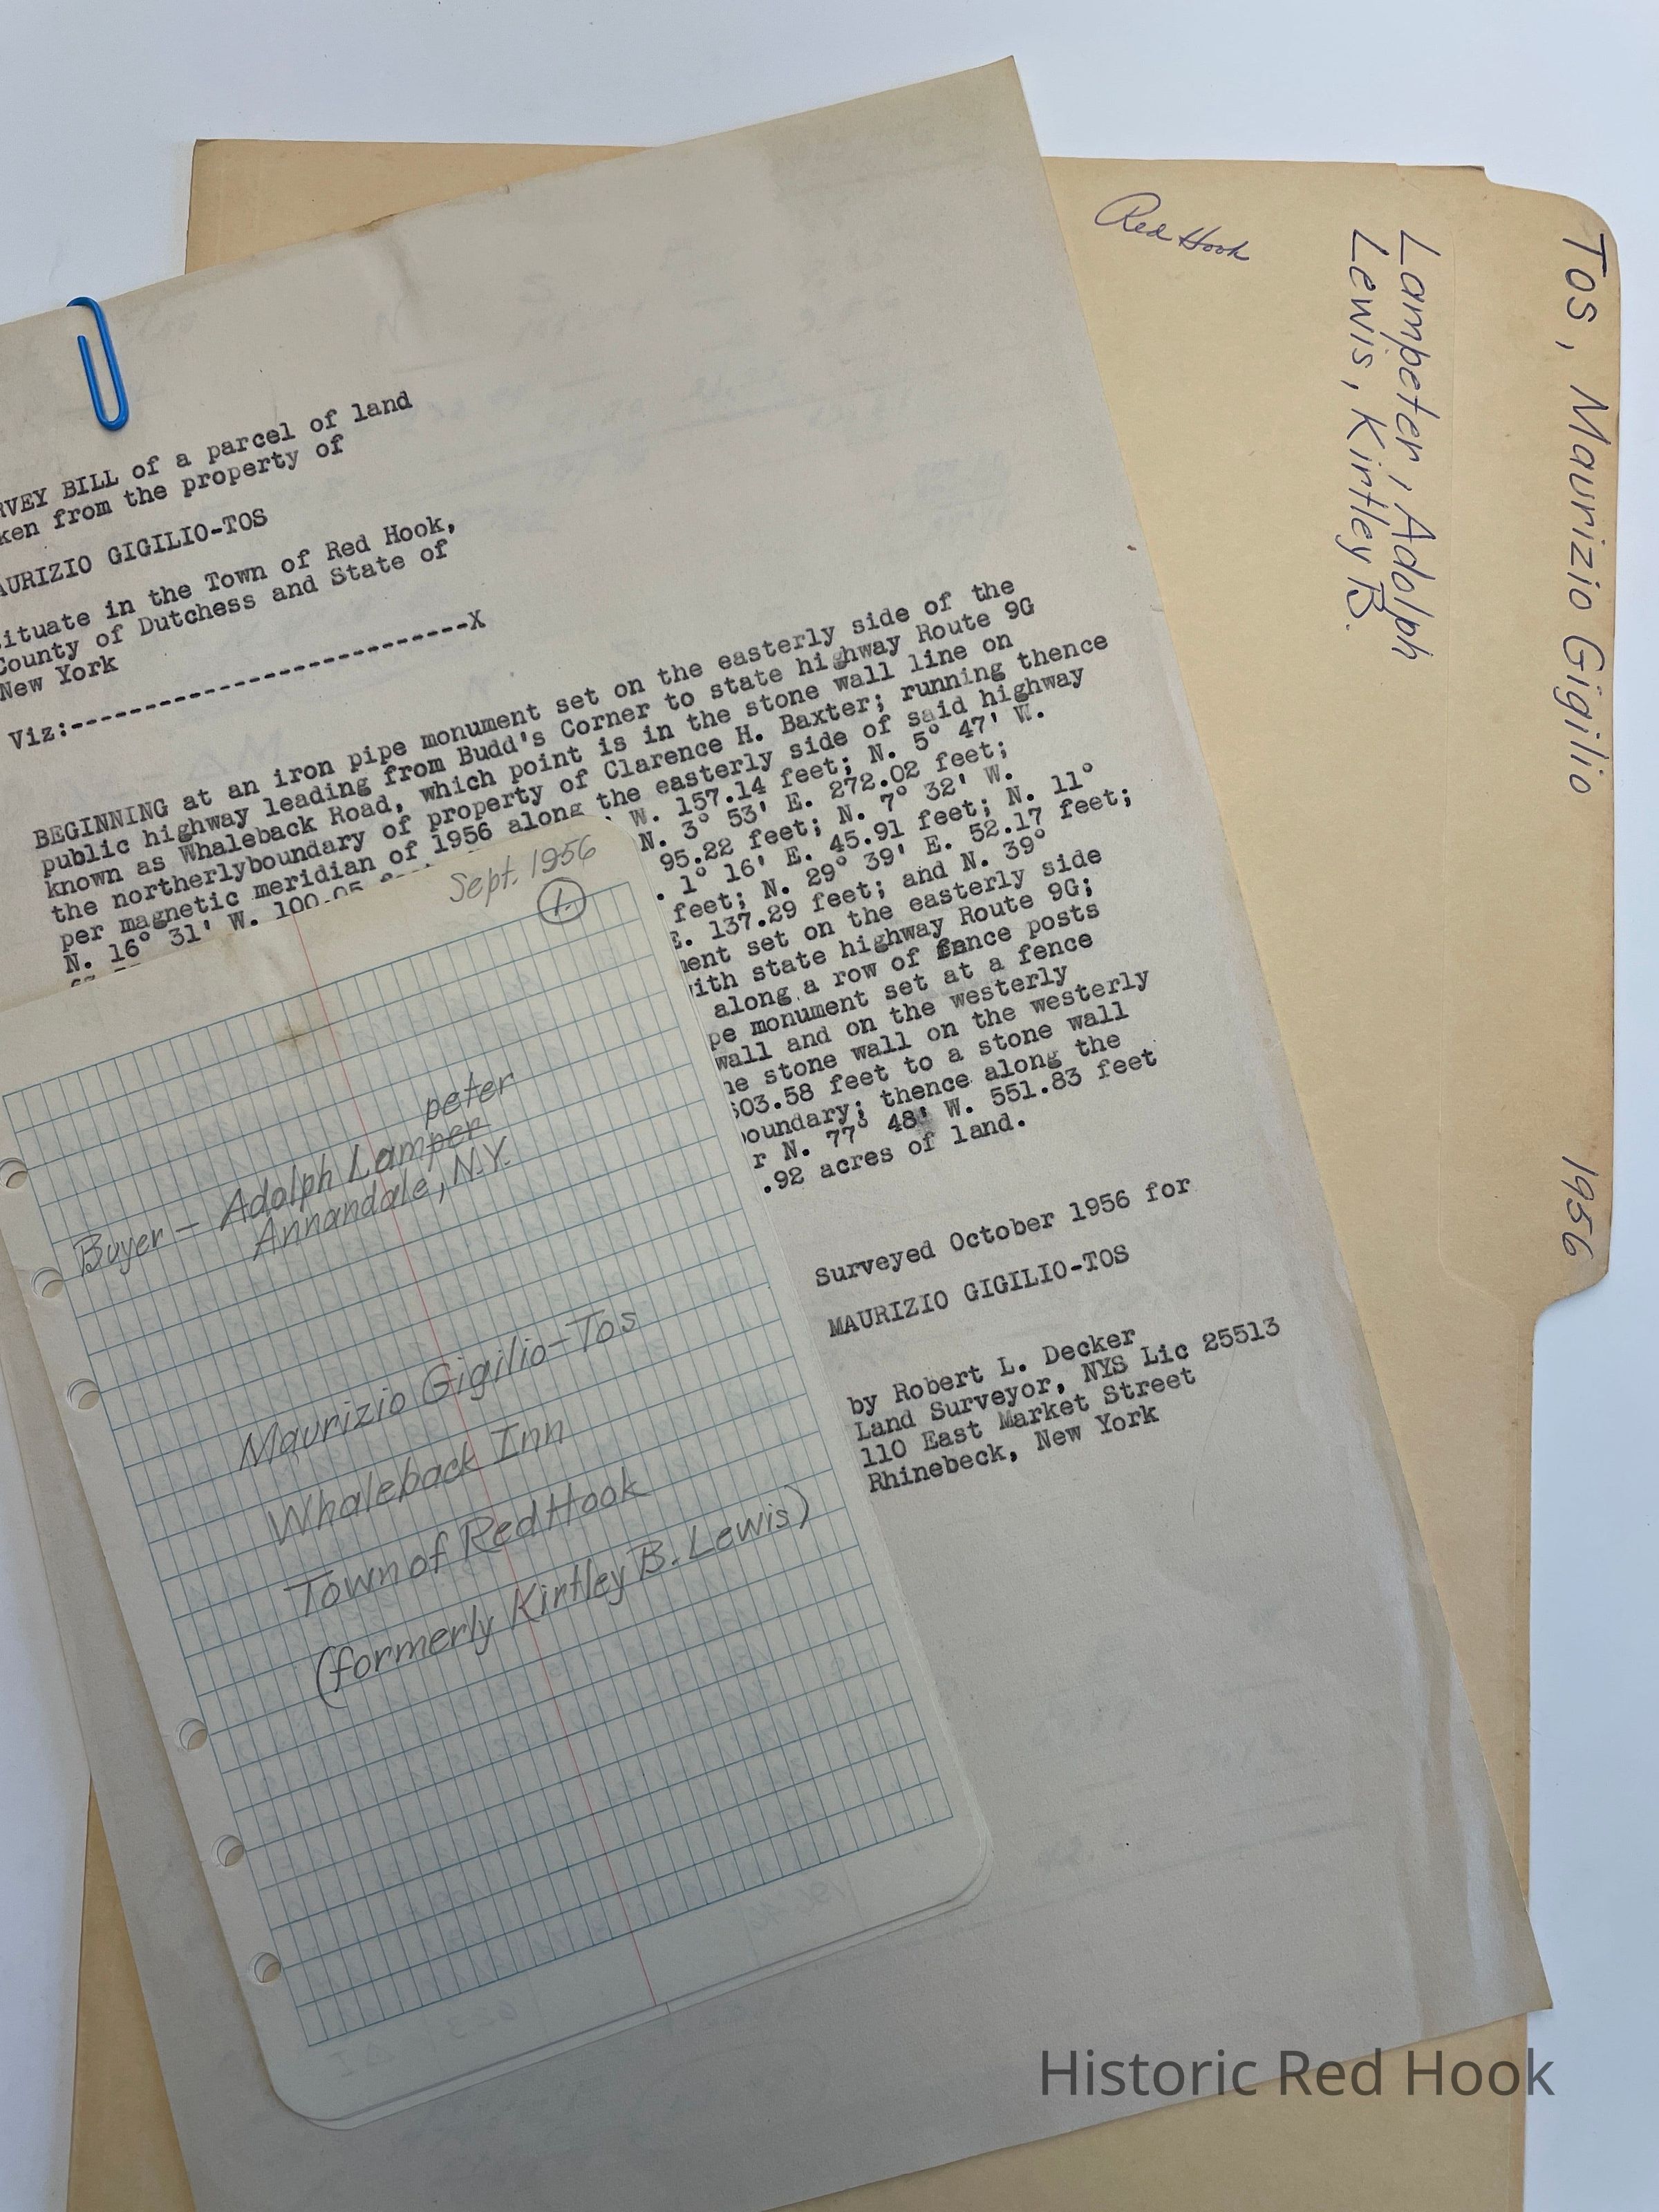 Tos, Maurizio Gigilio 1956
Lampeter, Adolph
Lewis, Kirtley B.
Red Hook
RVEY BILL of a parcel of land
ken from the property of
AURIZIO GIGILIO-TOS
ituate in the Town of Red Hook,
County of Dutchess and State of
New York
Viz:------------------------------X
BEGINNING at an iron pipe monument set on the easterly side of the
public highway leading from Budd's Corner to state highway Route 9G
known as Whaleback Road, which point is in the stone wall line on
the northerlyboundary of property of Clarence H. Baxter; running thence
per magnetic meridian of 1956 along the easterly side of said highway
N. 16° 31' W. 100.05 W. 157.14 feet; N. 5° 47' W.
N. 3° 53' E. 272.02 feet;
95.22 feet; N. 7° 32' W.
. 1° 16' E. 45.91 feet; N. 11°
feet; N. 29° 39' E. 52.17 feet;
E. 137.29 feet; and N. 39°
ment set on the easterly side
ith state highway Route 9G;
along a row of fence posts
pe monument set at a fence
wall and on the westerly
he stone wall on the westerly
603.58 feet to a stone wall
boundary; thence along the
r N. 77° 48' W. 551.83 feet
.92 acres of land.
Surveyed October 1956 for
MAURIZIO GIGILIO-TOS
by Robert L. Decker
Land Surveyor, NYS Lic 25513
110 East Market Street
Rhinebeck, New York
Sept. 1956
1.
peter
Buyer - Adolph Lamper
Annandale, N.Y.
Maurizio Gigilio-Tos
Whaleback Inn
Town of Red Hook
(formerly Kirtley B. Lewis)
Historic Red Hook